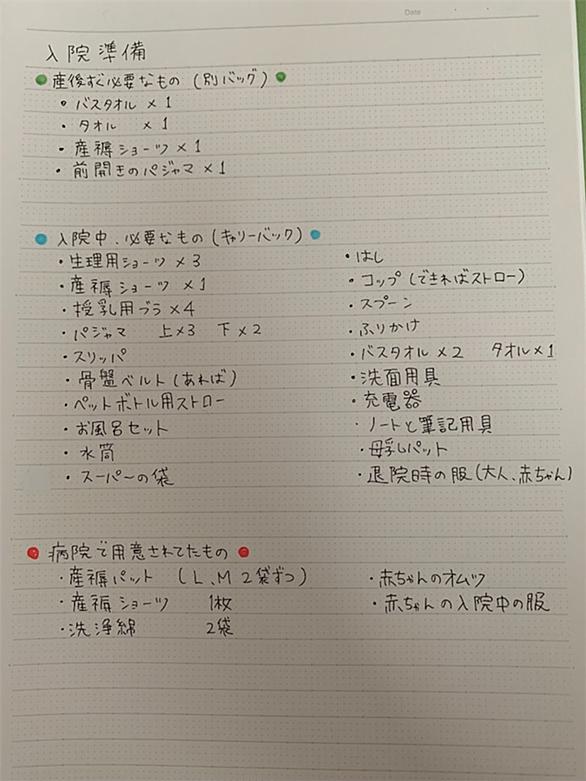 Date
入院準備
産後すぐ必要なもの (別バッグ)
・バスタオル × 1
・タオル × 1
・産褥ショーツ × 1
・前開きのパジャマ × 1
入院中、必要なもの (キャリーバック)
・生理用ショーツ × 3
・産褥ショーツ × 1
・授乳用ブラ × 4
・パジャマ 上×3 下×2
・スリッパ
・骨盤ベルト (あれば)
・ペットボトル用ストロー
・お風呂セット
・水筒
・スーパーの袋
・はし
・コップ (できればストロー)
・スプーン
・ふりかけ
・バスタオル × 2 タオル × 1
・洗面用具
・充電器
・ノートと筆記用具
・母乳パット
・退院時の服 (大人、赤ちゃん)
病院で用意されてたもの
・産褥パット (L、M 2袋ずつ)
・産褥ショーツ 1枚
・洗浄綿 2袋
・赤ちゃんのオムツ
・赤ちゃんの入院中の服